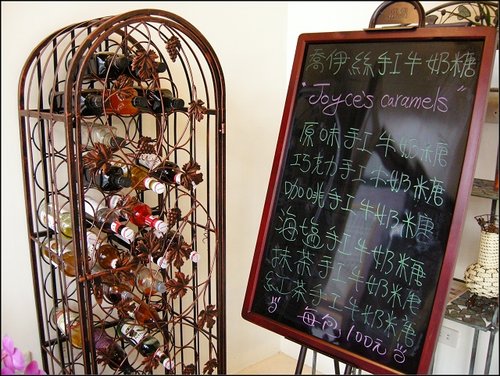 喬伊絲手工牛奶糖
"Joyce's caramels"
原味手工牛奶糖
巧克力手工牛奶糖
咖啡手工牛奶糖
海塩手工牛奶糖
抹茶手工牛奶糖
紅茶手工牛奶糖
每包100元